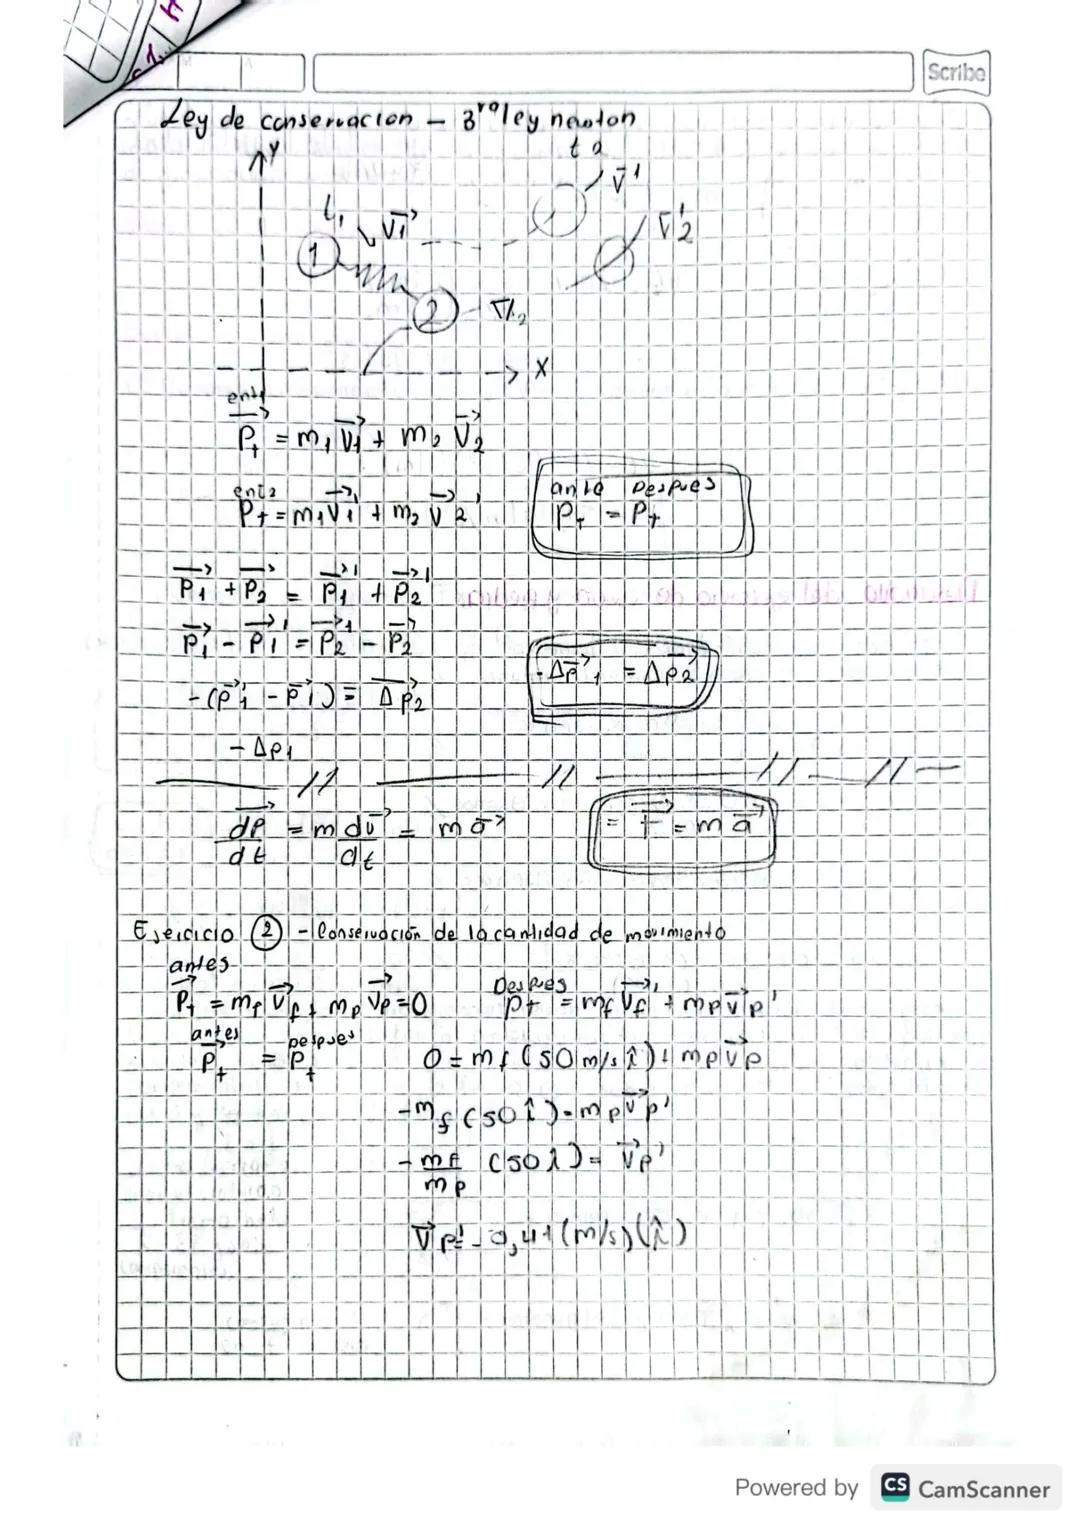 Scribe
Ley de conservacion - 3ra ley newton
Y
t 2
V⃗'
t₁ V₁⃗
V⃗'2
1
2 V⃗₂
X
en t1
P⃗t = m₁ V⃗₁ + m₂ V⃗₂
en t2
P⃗t = m₁V⃗₁' + m₂ V⃗2'
ante Despues
Pt = Pt
P⃗1 + P⃗2 = P⃗1' + P⃗2'
P⃗1 - P⃗1' = P⃗2' - P⃗2
-ΔP⃗1 = ΔP⃗2
-(P⃗'1 - P⃗1) = ΔP⃗2
- ΔP1
dP⃗/dt = m dv⃗/dt = m a⃗
= F⃗ = m a⃗
Ejercicio 2 - Conservación de la cantidad de movimiento
antes
P⃗t = mf V⃗f + mp V⃗p = 0
Despues
Pt = mf V⃗f' + mp V⃗p'
antes Despues
P⃗t = Pt
0 = mf (50 m/s î) + mp V⃗p
-mf (50 î) = mp V⃗p'
- mf/mp (50 î) = V⃗p'
V⃗p' = 0,41 (m/s) (î)
Powered by CS CamScanner